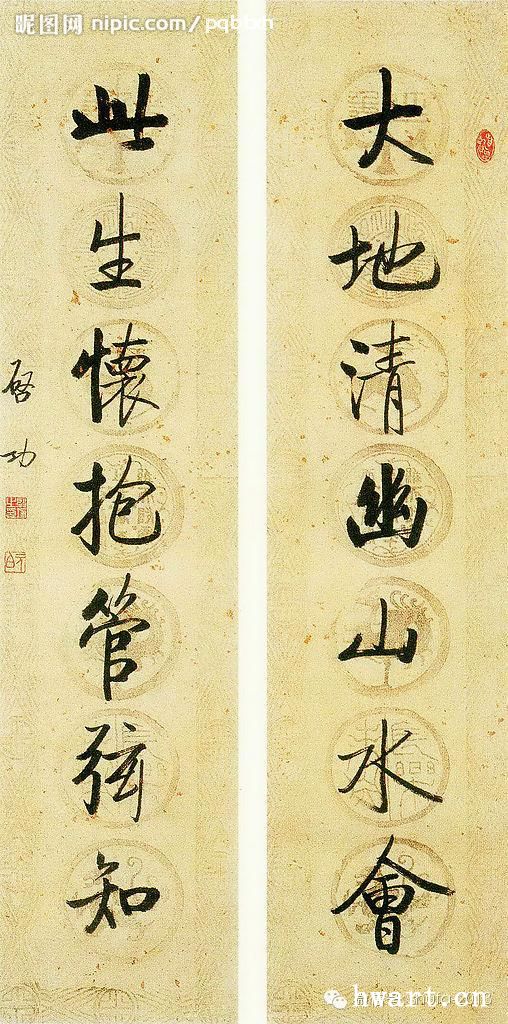 大地清幽山水會
此生懷抱管弦知
啓功
昵图网 nipic.com/pqbbxh
hwart.cn